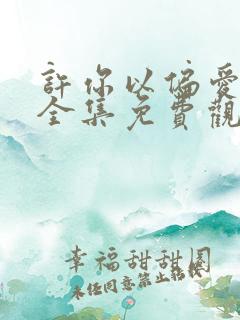 許你以偏愛
全集免費觀
幸福甜甜圈
未经同意禁止转载